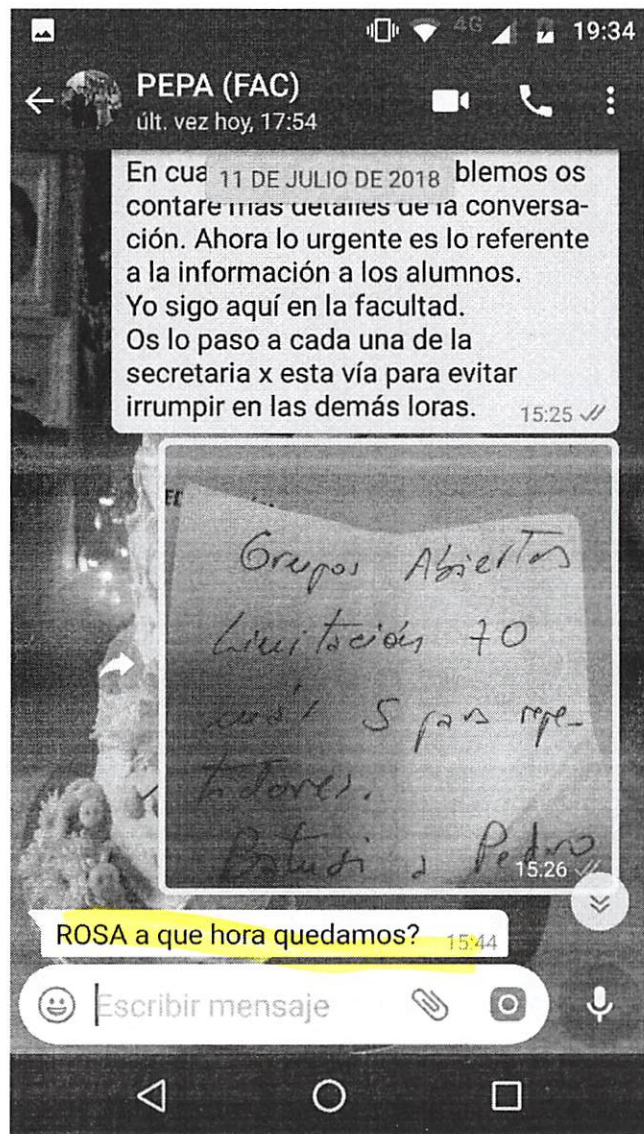 4G 19:34
PEPA (FAC)
últ. vez hoy, 17:54
11 DE JULIO DE 2018
En cua blemos os
contaré más detalles de la conversa-
ción. Ahora lo urgente es lo referente
a la información a los alumnos.
Yo sigo aquí en la facultad.
Os lo paso a cada una de la
secretaria x esta vía para evitar
irrumpir en las demás loras. 15:25
Grupos Abiertos
Limitación 70
5 para repe-
tidores.
a Pedro
15:26
ROSA a que hora quedamos? 15:44
Escribir mensaje